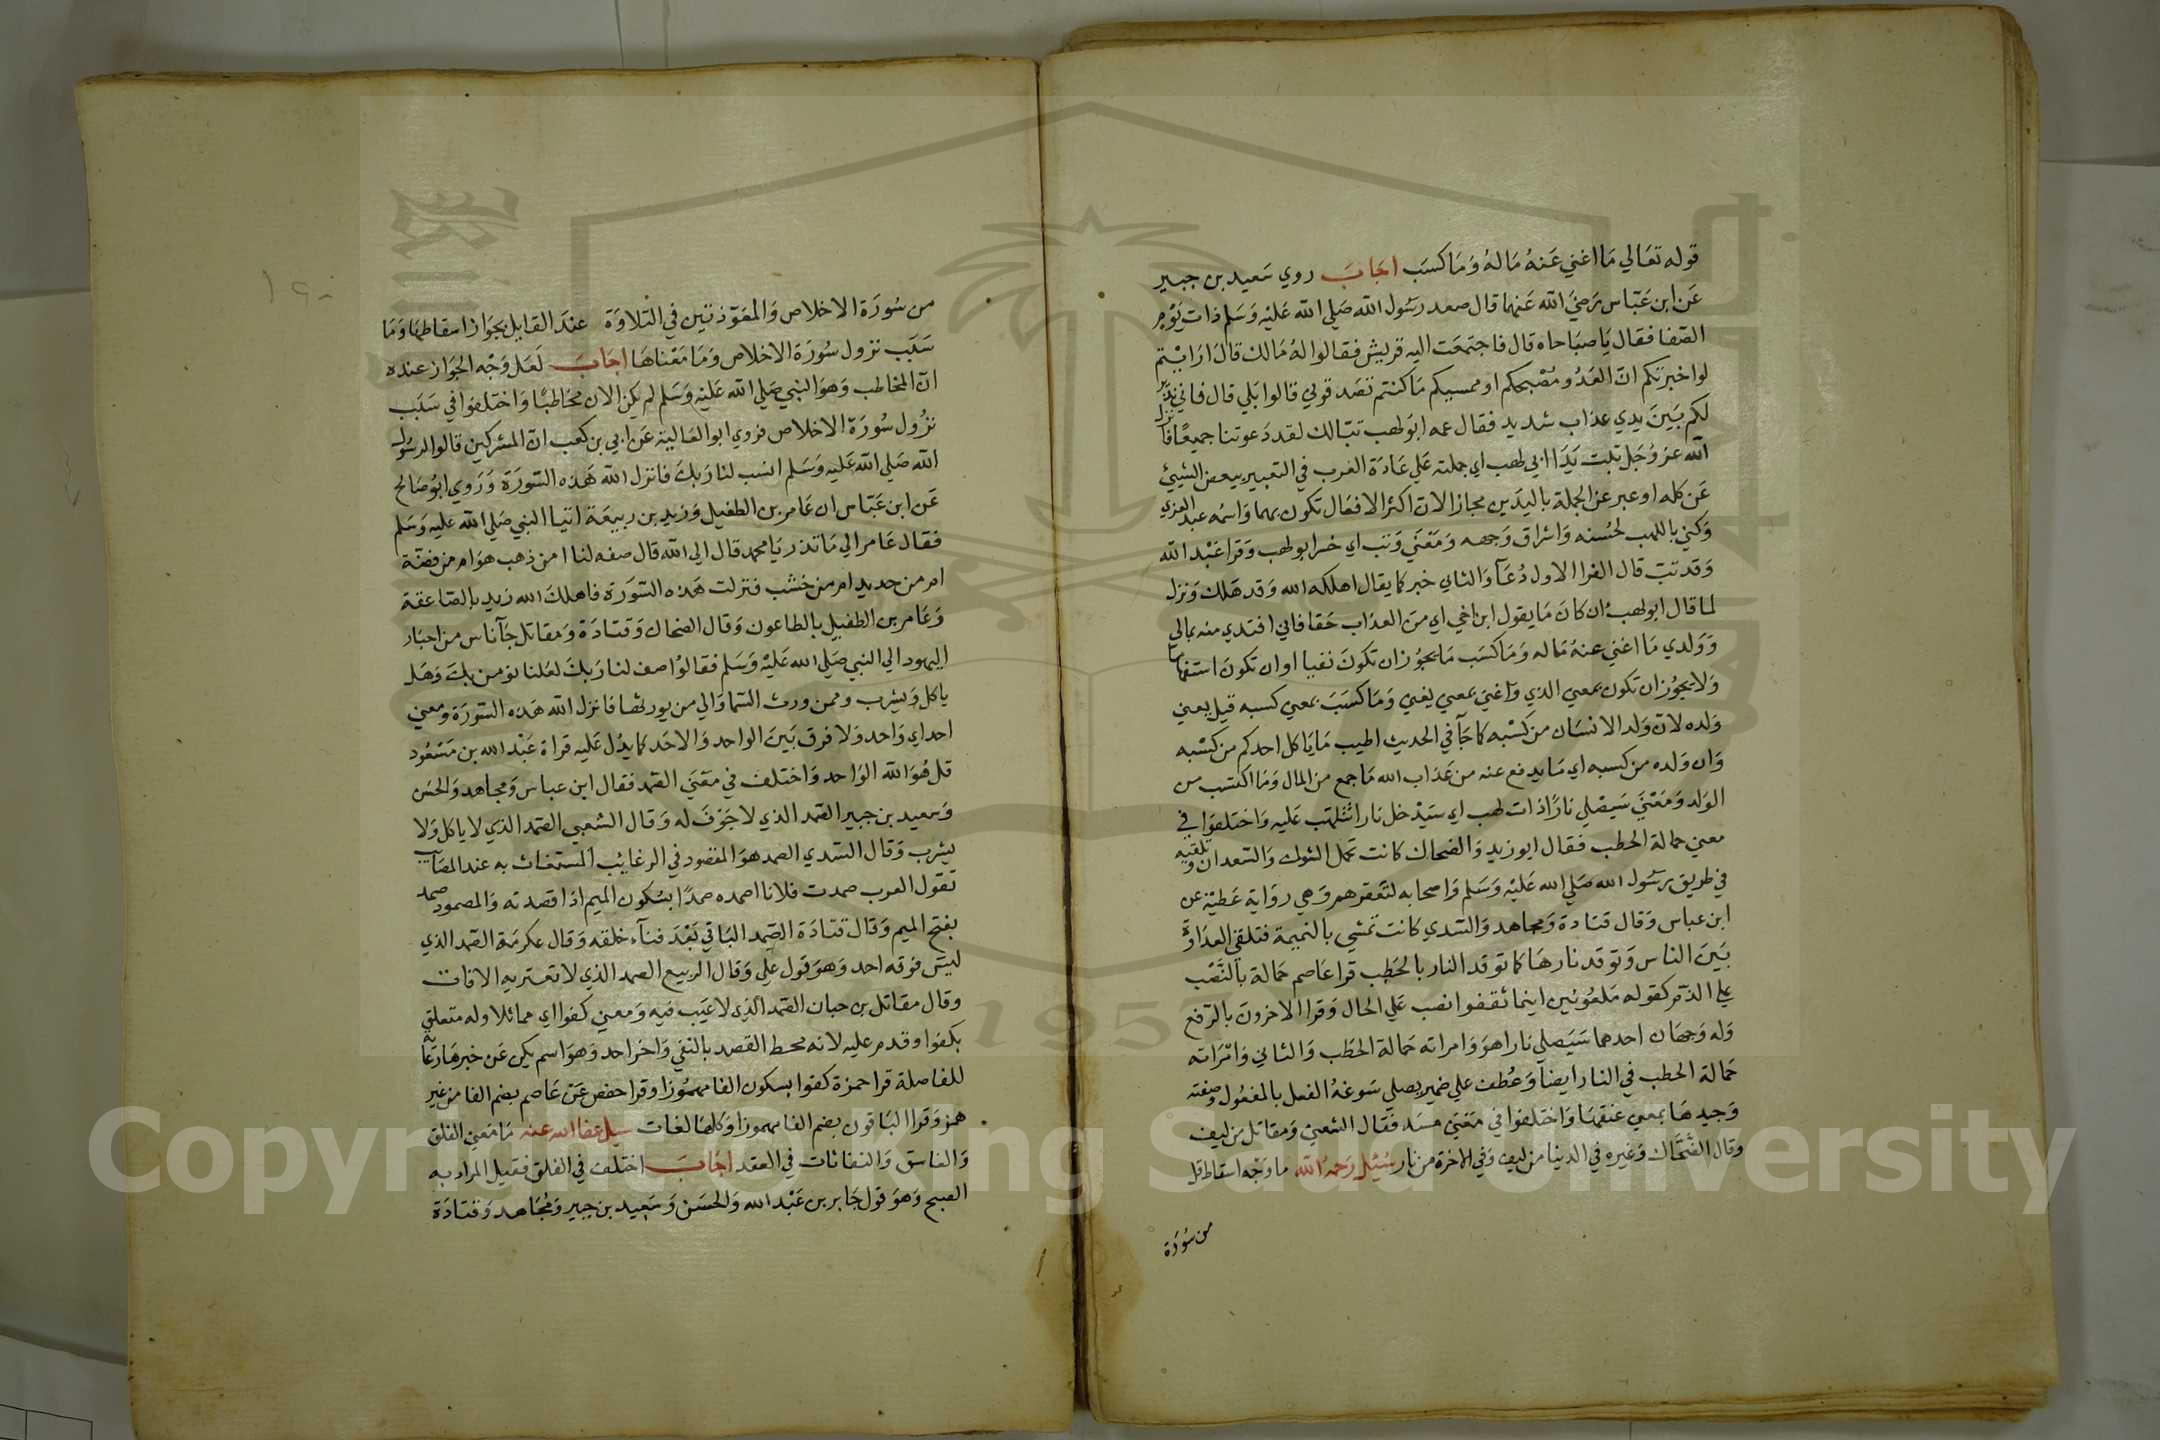 قوله تعالي ما اغني عنه ماله وما كسب اجاب روي سعيد بن جبير
عن ابن عباس رضي الله عنهما قال صعد رسول الله صلي الله عليه وسلم ذات يوم
الصفا فقال يا صباحاه قال فاجتمعت اليه قريش فقالوا له مالك قال ارايتم
لو اخبرتكم ان العدو مصبحكم او ممسيكم ما كنتم تصدقوني قالوا بلي قال فاني نذير
لكم بين يدي عذاب شديد فقال عمه ابو لهب تبا لك لقد دعوتنا جميعا فانزل
الله عز وجل تبت يدا ابي لهب اي جملته علي عادة العرب في التعبير ببعض الشيئ
عن كله او عبر عن الجملة باليدين مجازا لان اكثر الافعال تكون بهما واسمه عبد العزي
وكني باللهب لحسنه واشراق وجهه ومعني وتب اي خسر ابو لهب وقرا عبد الله
وقد تب قال الفرا الاول دعآ والثاني خبر كما يقال اهلكه الله وقد هلك ونزل
لما قال ابو لهب ان كان ما يقول ابن اخي اي من العذاب حقا فاني افتدي منه بمالي
وولدي ما اغني عنه ماله وما كسب ما يجوز ان تكون نفيا او ان تكون استفهاما
ولا يجوز ان تكون بمعني الذي واغني بمعني يغني وما كسب بمعني كسبه قيل يعني
ولده لان ولد الانسان من كسبه كما جآ في الحديث اطيب ما ياكل احدكم من كسبه
وان ولده من كسبه اي ما يدفع عنه من عذاب الله ما جمع من المال وما اكتسب من
الولد ومعني سيصلي نارا ذات لهب اي سيدخل نارا تتلهب عليه واختلفوا في
معني حمالة الحطب فقال ابو زيد والضحاك كانت تحمل الشوك والسعدان وتلقيه
في طريق رسول الله صلي الله عليه وسلم واصحابه لتعقرهم وهي رواية عطية عن
ابن عباس وقال قتادة ومجاهد والسدي كانت تمشي بالنميمة فتلقي العداوة
بين الناس وتوقد نارها كما توقد النار بالحطب قرا عاصم حمالة بالنصب
علي الذم كقوله ملعونين اينما ثقفوا نصب علي الحال وقرا الاخرون بالرفع
وله وجهان احدهما سيصلي نارا هو وامراته حمالة الحطب والثاني وامراته
حمالة الحطب في النار ايضا وعطف علي ضمير يصلي سوغه الفعل بالمفعول وصفته
وجيدها بمعني عنقها واختلفوا في معني مسد فقال الشعبي ومقاتل من ليف
وقال الضحاك وغيره في الدنيا من ليف وفي الاخرة من نار سئيل رحمه الله ما وجه اسقاط قل
من سورة
١٢٠
من سورة الاخلاص والمعوذتين في التلاوة عند القايل بجواز اسقاطها وما
سبب نزول سورة الاخلاص وما معناها اجاب لعل وجه الجواز عنده
ان المخاطب وهو النبي صلي الله عليه وسلم لم يكن الان مخاطبا واختلفوا في سبب
نزول سورة الاخلاص فروي ابو العالية عن ابي بن كعب ان المشركين قالوا لرسول
الله صلي الله عليه وسلم انسب لنا ربك فانزل الله هذه السورة وروي ابو صالح
عن ابن عباس ان عامر بن الطفيل وزيد بن ربيعة اتيا النبي صلي الله عليه وسلم
فقال عامر الي ما تذر يا محمد قال الي الله قال صفه لنا امن ذهب هو ام من فضة
ام من حديد ام من خشب فنزلت هذه السورة فاهلك الله زيد بالصاعقة
وعامر بن الطفيل بالطاعون وقال الضحاك وقتادة ومقاتل جآ ناس من احبار
اليهود الي النبي صلي الله عليه وسلم فقالوا صف لنا ربك لعلنا نومن بك وهل
ياكل ويشرب وممن ورث السما والي من يورثها فانزل الله هذه السورة ومعني
احد اي واحد ولا فرق بين الواحد والاحد كما يدل عليه قراة عبد الله بن مسعود
قل هو الله الواحد واختلف في معني الصمد فقال ابن عباس ومجاهد والحسن
وسعيد بن جبير الصمد الذي لا جوف له وقال الشعبي الصمد الذي لا ياكل ولا
يشرب وقال السدي الصمد هو المقصود في الرغايب المستغاث به عند المصايب
تقول العرب صمدت فلانا اصمده صمدا بسكون الميم اذا قصدته والمصمود صمد
بفتح الميم وقال قتادة الصمد الباقي بعد فنآء خلقه وقال عكرمة الصمد الذي
ليس فوقه احد وهو قول علي وقال الربيع الصمد الذي لا تعتريه الافات
وقال مقاتل بن حبان الصمد الذي لا عيب فيه ومعني كفوا اي مماثلا وله متعلق
بكفوا وقدم عليه لانه محط القصد بالنفي واخر احد وهو اسم يكن عن خبرها رعاية
للفاصلة قرا حمزة كفوا بسكون الفا مهموزا وقرا حفص عن عاصم بضم الفا من غير
همز وقرا الباقون بضم الفا مهموزا وكلها لغات سيل عفا الله عنه ما معني الفلق
والغاسق والنفاثات في العقد اجاب اختلف في الفلق فقيل المراد به
الصبح وهو قول جابر بن عبد الله والحسن وسعيد بن جبير ومجاهد وقتادة
1957
Copyright © King Saud University